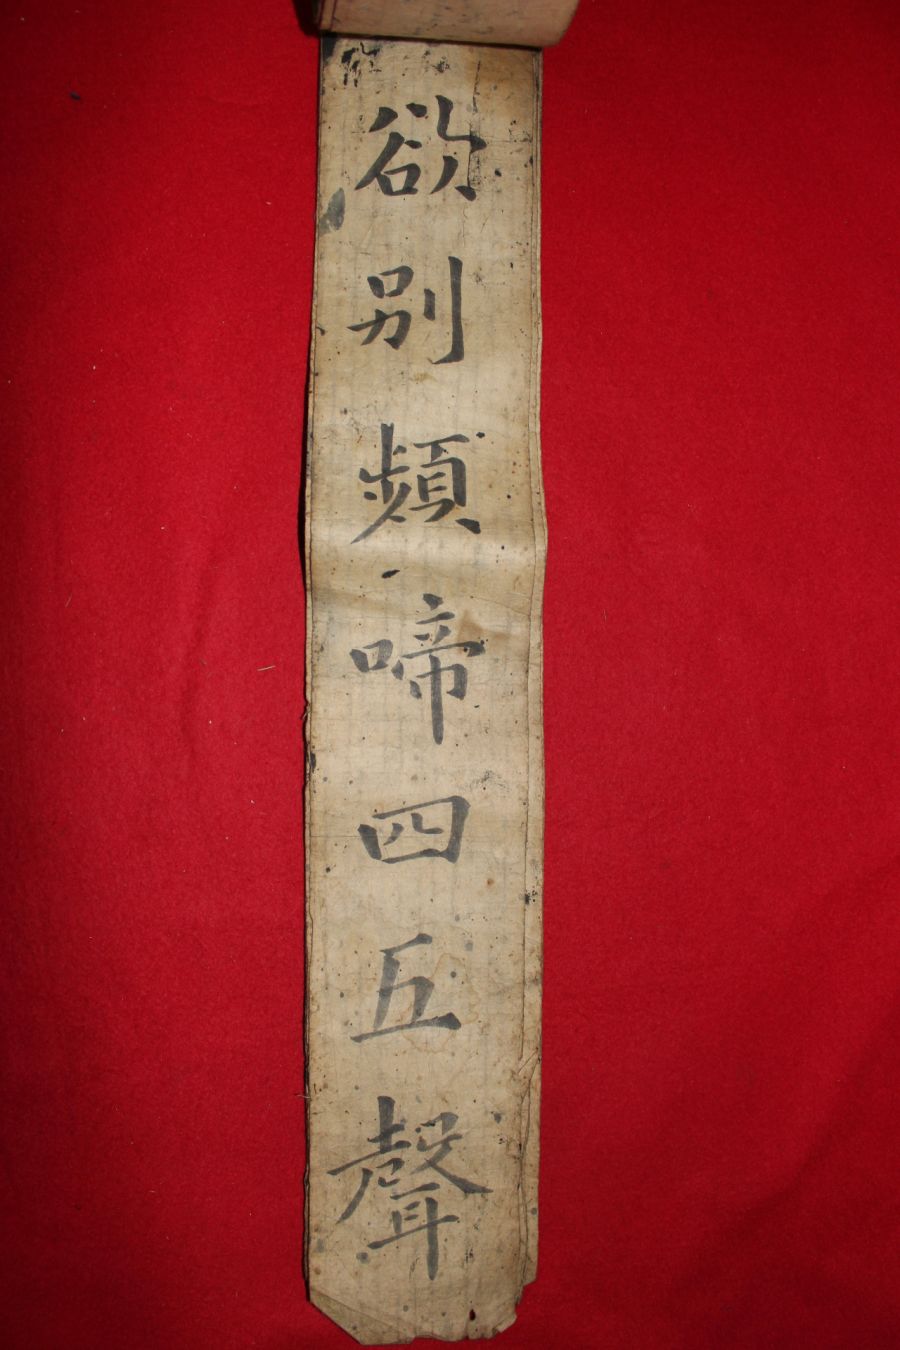 欲別頻啼四五聲